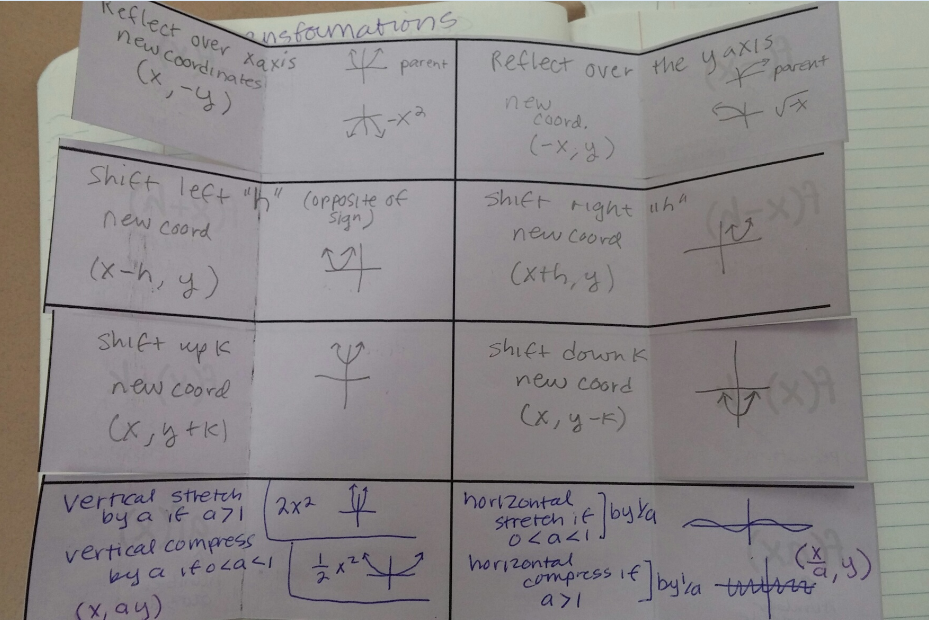 ansformations
Reflect over xaxis
new coordinates
(x, -y)
parent
-x²
Reflect over the yaxis
new
coord.
(-x, y)
parent
√-x
Shift left "h"
(opposite of
sign)
new coord
(x-h, y)
Shift right "h"
new coord
(x+h, y)
Shift up K
new coord
(x, y+K)
Shift down K
new coord
(x, y-K)
vertical stretch
by a if a>1
2x²
vertical compress
by a if 0<a<1
1/2 x²
(x, ay)
horizontal
stretch if
0<a<1
by 1/a
horizontal
compress if
a>1
by 1/a
(x/a, y)